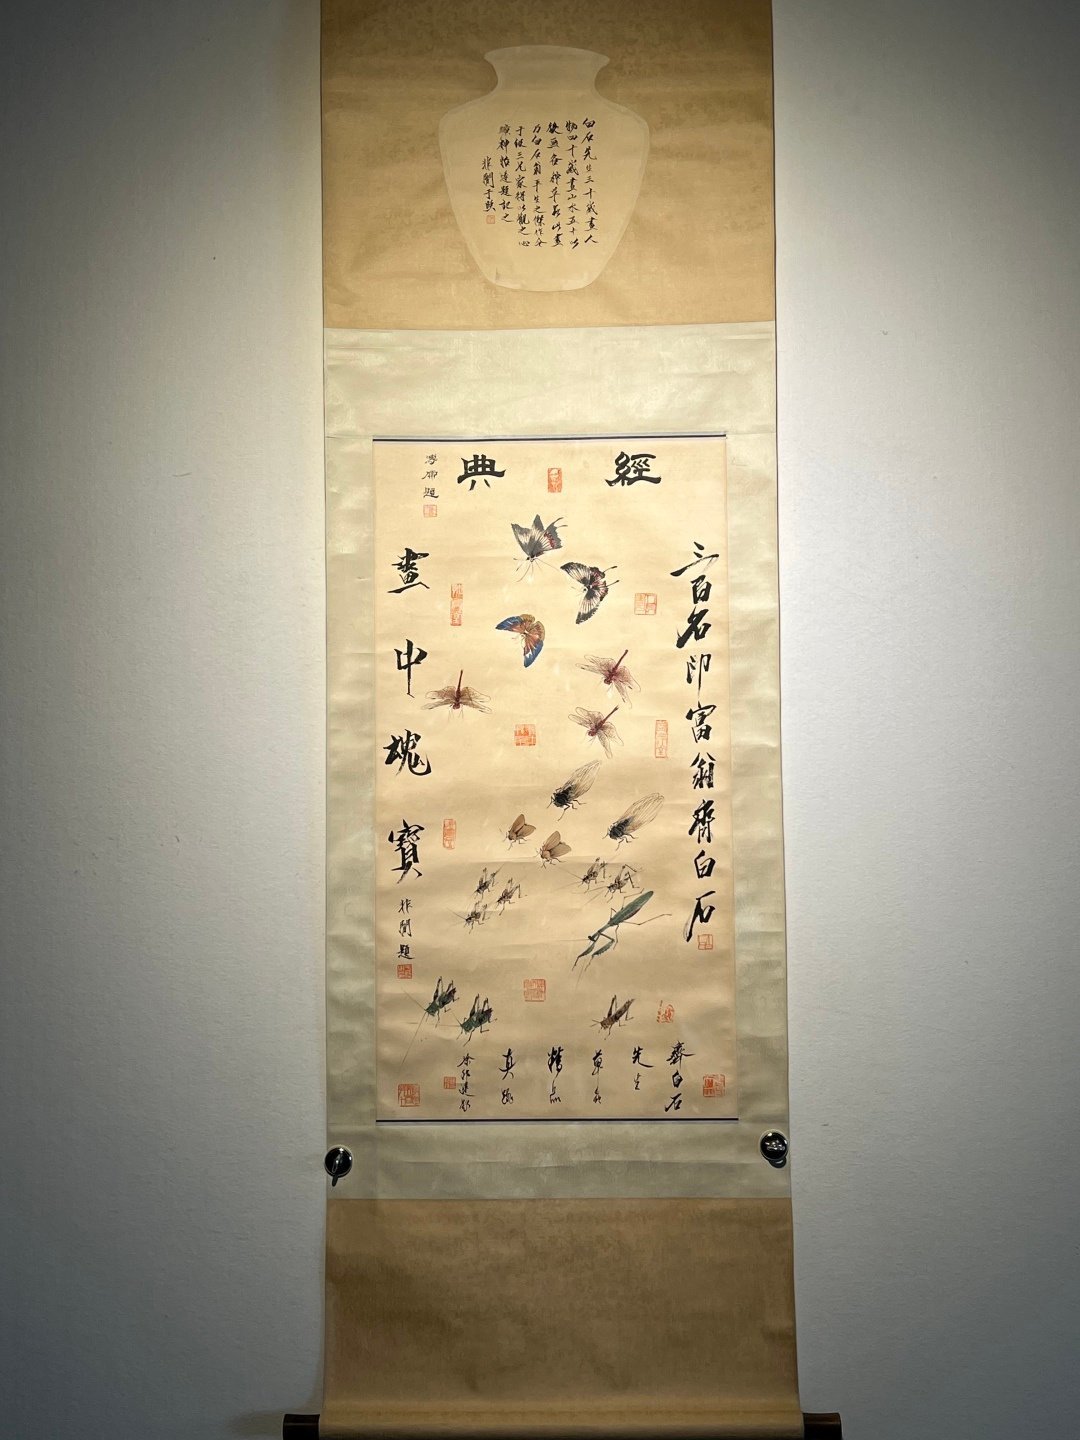 白石先生三十歲畫人
物四十歲畫山水五十以
後画各种草虫此畫
乃白石翁平生之傑作今
于三兄家得以觀之心
曠神怡遂題記之
非闇于照
經典
題
三百石印富翁齊白石
畫中魂寶
非闇題
齊白石
先生
草虫
精品
真跡